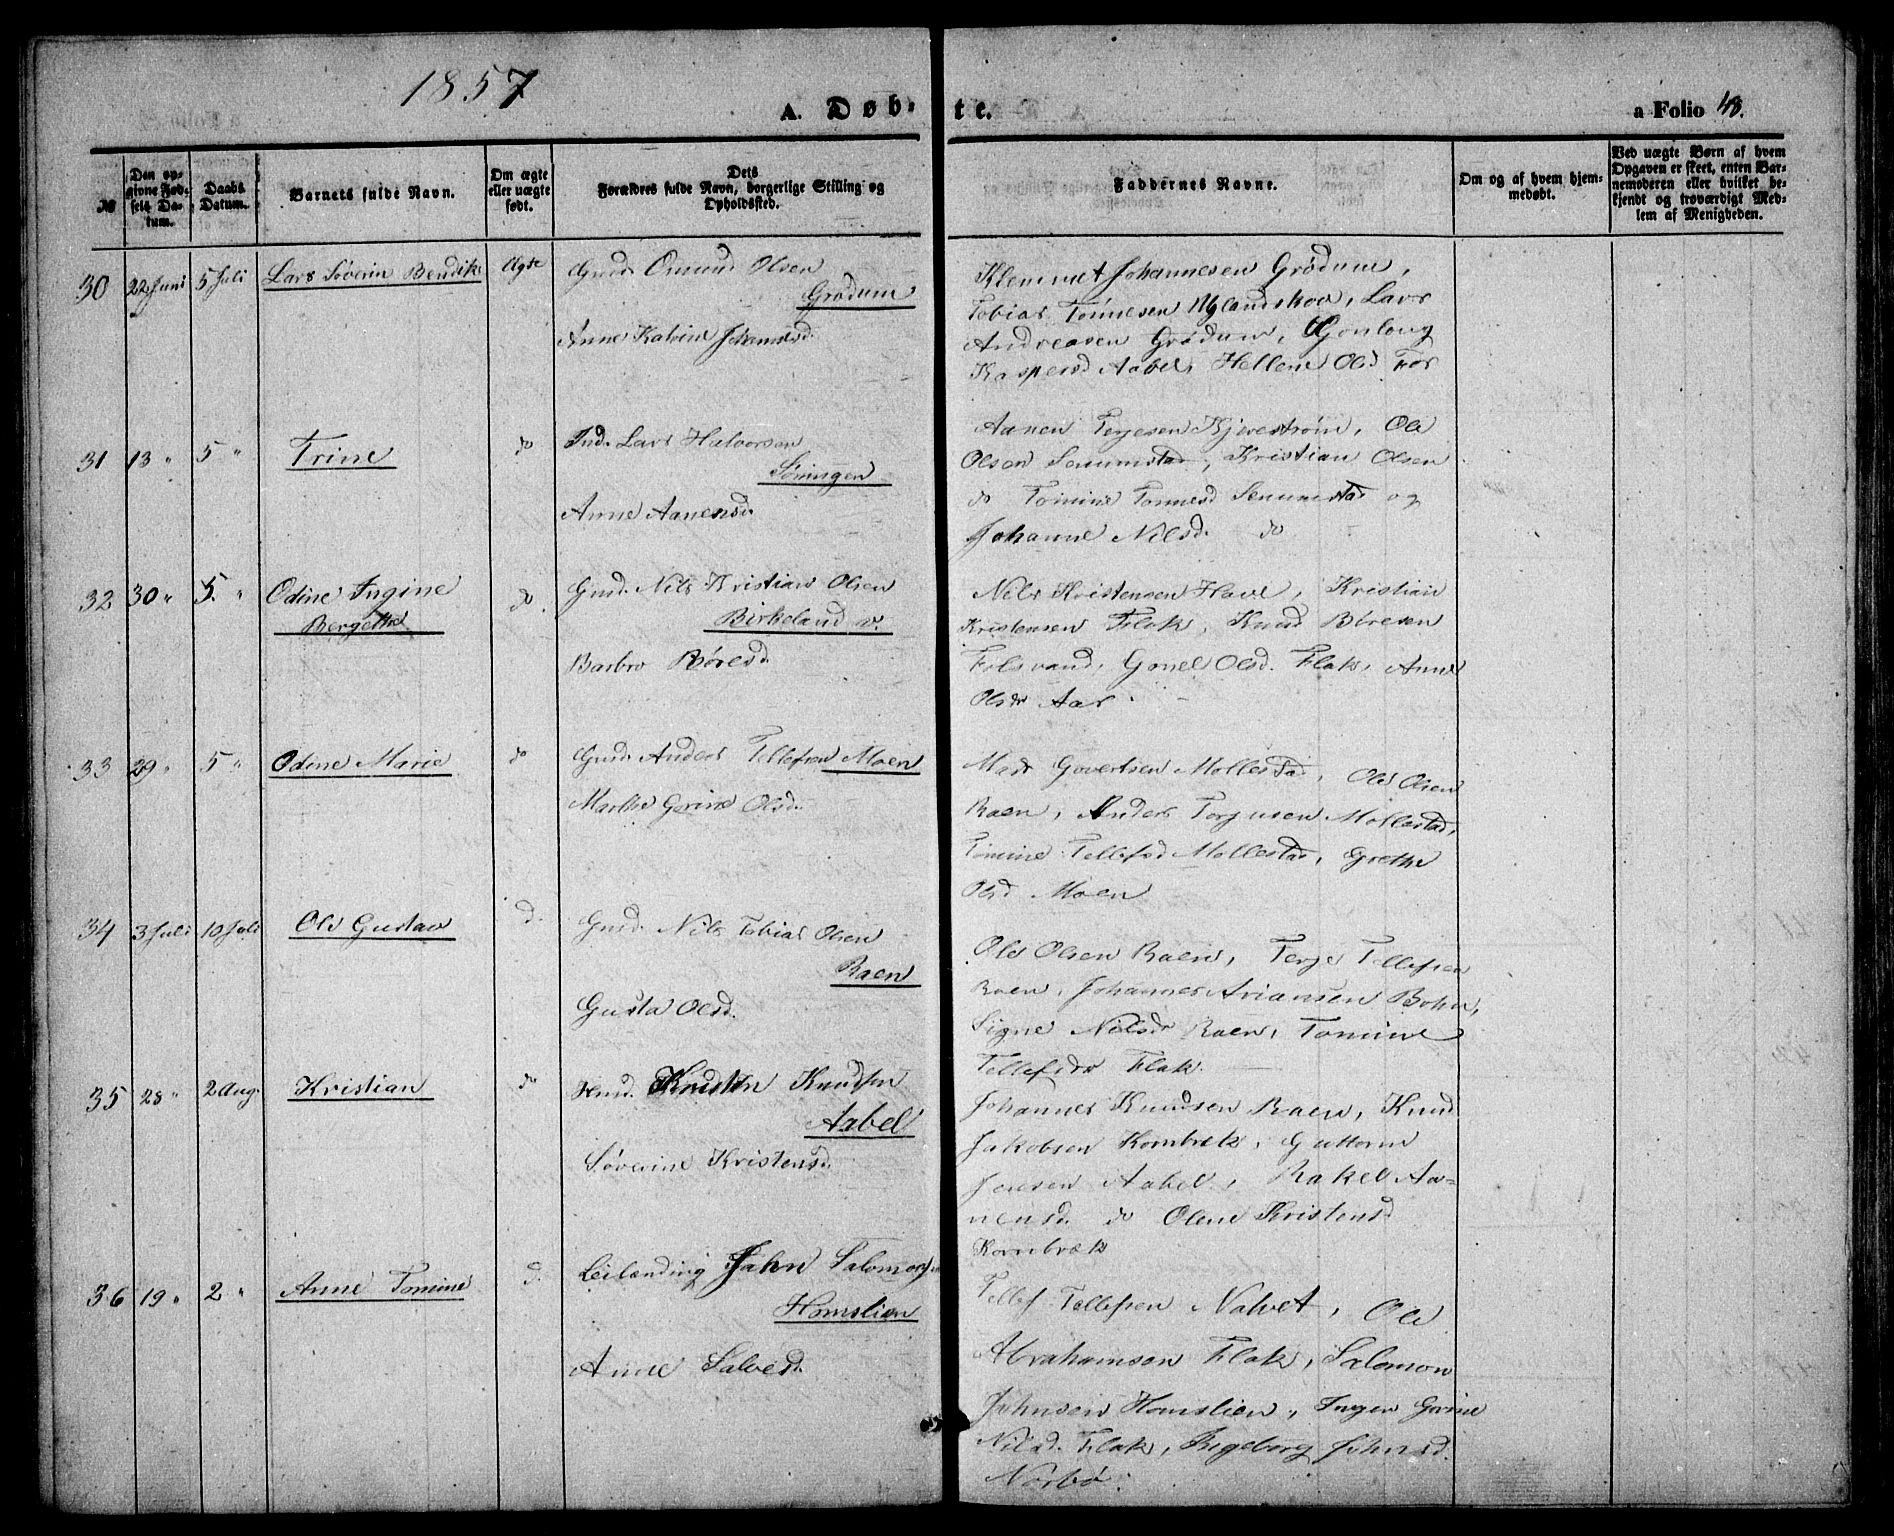 1857
A. Døb-
te.
a Folio 48.
№
Den op-
givne Fød-
sels Da-
tum.
Daabs
Datum.
Barnets fulde Navn.
Om ægte
eller uægte
født.
Dets
Forældres fulde Navn, borgerlige Stilling og
Opholdssted.
Faddernes Navne.
Om og af hvem hjem-
medøbt.
Ved uægte Børn af hvem
Opgaven er skeet, enten Bar-
nemoderen eller hvilket be-
kjendt og troværdigt Med-
lem af Menigheden.
30 22 Juni 5 Juli Lars Søverin Bendik Ægte
Gmd. Omund Olsen
Grødum
Anne Katrine Johannesd.
Klemmet Johannesen Grødum,
Tobias Tønnesen Uglandskoa, Lars
Andreasen Grødum, Gonloug
Kaspersd Aabel, Hellene Olsd
31 13 " 5 " Trine do
Ind. Lars Halvorsen
Anne Aanensd.
Aanen Terjesen Kjerestrøm, Ole
Olsen Senumstad, Kristian Olsen
do Tomine Tonnesd Senumstad og
Johanne Nilsd. do
32 30 " 5. " Odine Ingine
Bergethe do.
Gmd. Nils Kristian Olsen
Birkeland v.
Barbro Børesd.
Nils Kristensen Have, Kristian
Kristensen Flak, Knud Børesen
Folsvand, Gonel Olsd. Flak, Anne
Olsdr Aas.
33 29 " 5 " Odine Marie do
Gmd. Anders Tellefsen Moen
Marthe Gurine Olsd.
Mads Govertsen Mollestad, Ole Olsen
Raen, Anders Torjusen Mollestad,
Tomine Tellefsd Mollestad, Grethe
Olsd Moen
34 3 Juli 10 Juli Ole Gustav d.
Gmd. Nils Tobias Olsen
Raen
Gusta Olsd.
Ole Olsen Raen, Terje Tellefsen
Raen, Johannes Ariansen Bohn,
Signe Nilsdr Raen, Tomine
Tellefsdr Flak.
35 28 " 2 Aug. Kristian do
Kristen Knudsen
Aabel
Søverine Kristensd.
Johannes Knudsen Raen, Knud
Jakobsen Kornbrek, Guttorm
Jensen Aabel, Rakel Aa-
nensd. do Olene Kristensd
Kornbræk
36 19 " 2 " Anne Tomine d.
Leilænding Jahn Salomonsen
Homslien
Anne Salvesd.
Tellef Tellefsen Natvet, Ole
Abrahamsen Flak, Salomon
Johnsen Homslien, Inger Gurine
Nilsd. Flak, Ingeborg Johnsd.
Norbø.